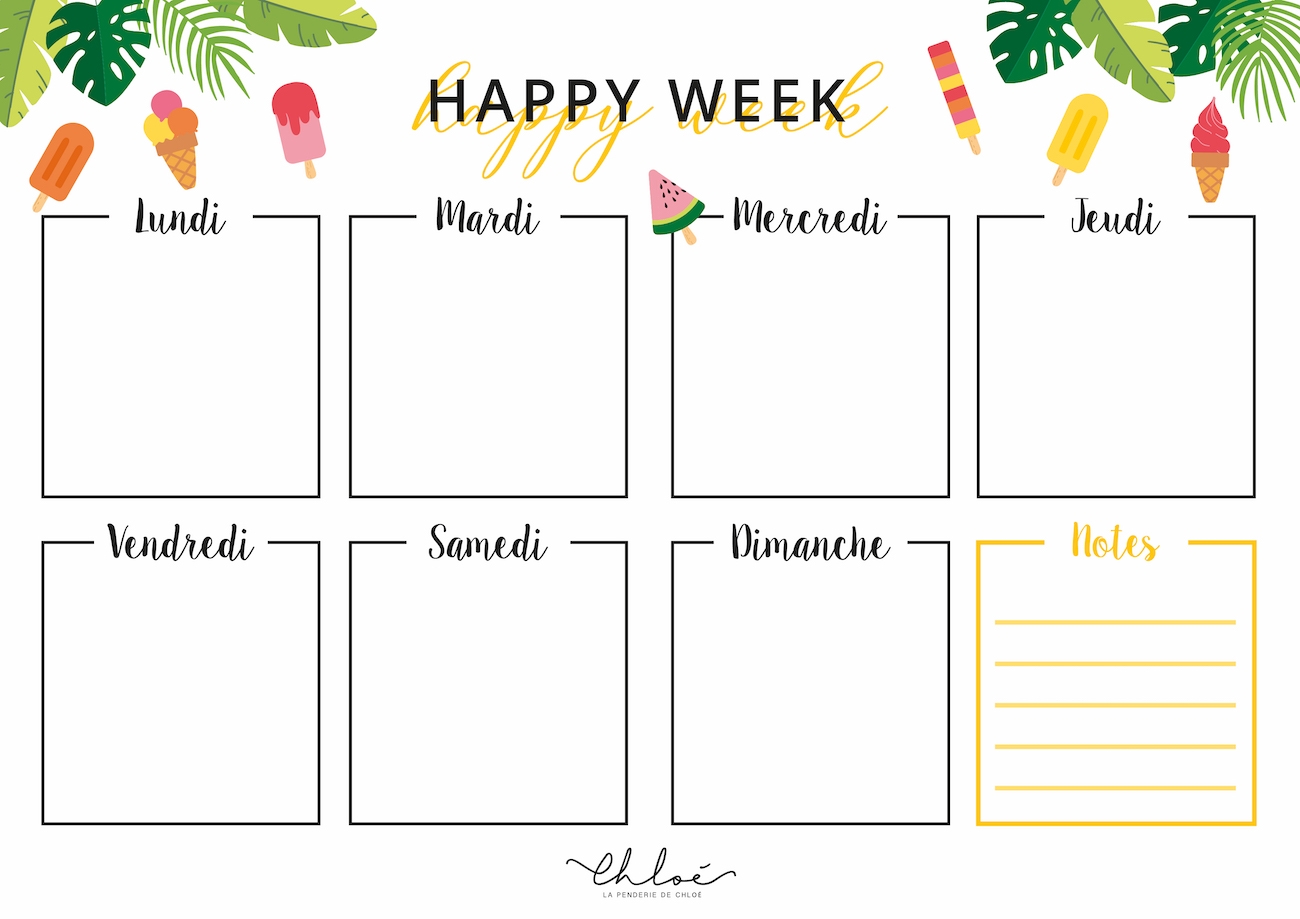 HAPPY WEEK
happy week
Lundi
Mardi
Mercredi
Jeudi
Vendredi
Samedi
Dimanche
Notes
Chloé
LA PENDERIE DE CHLOÉ